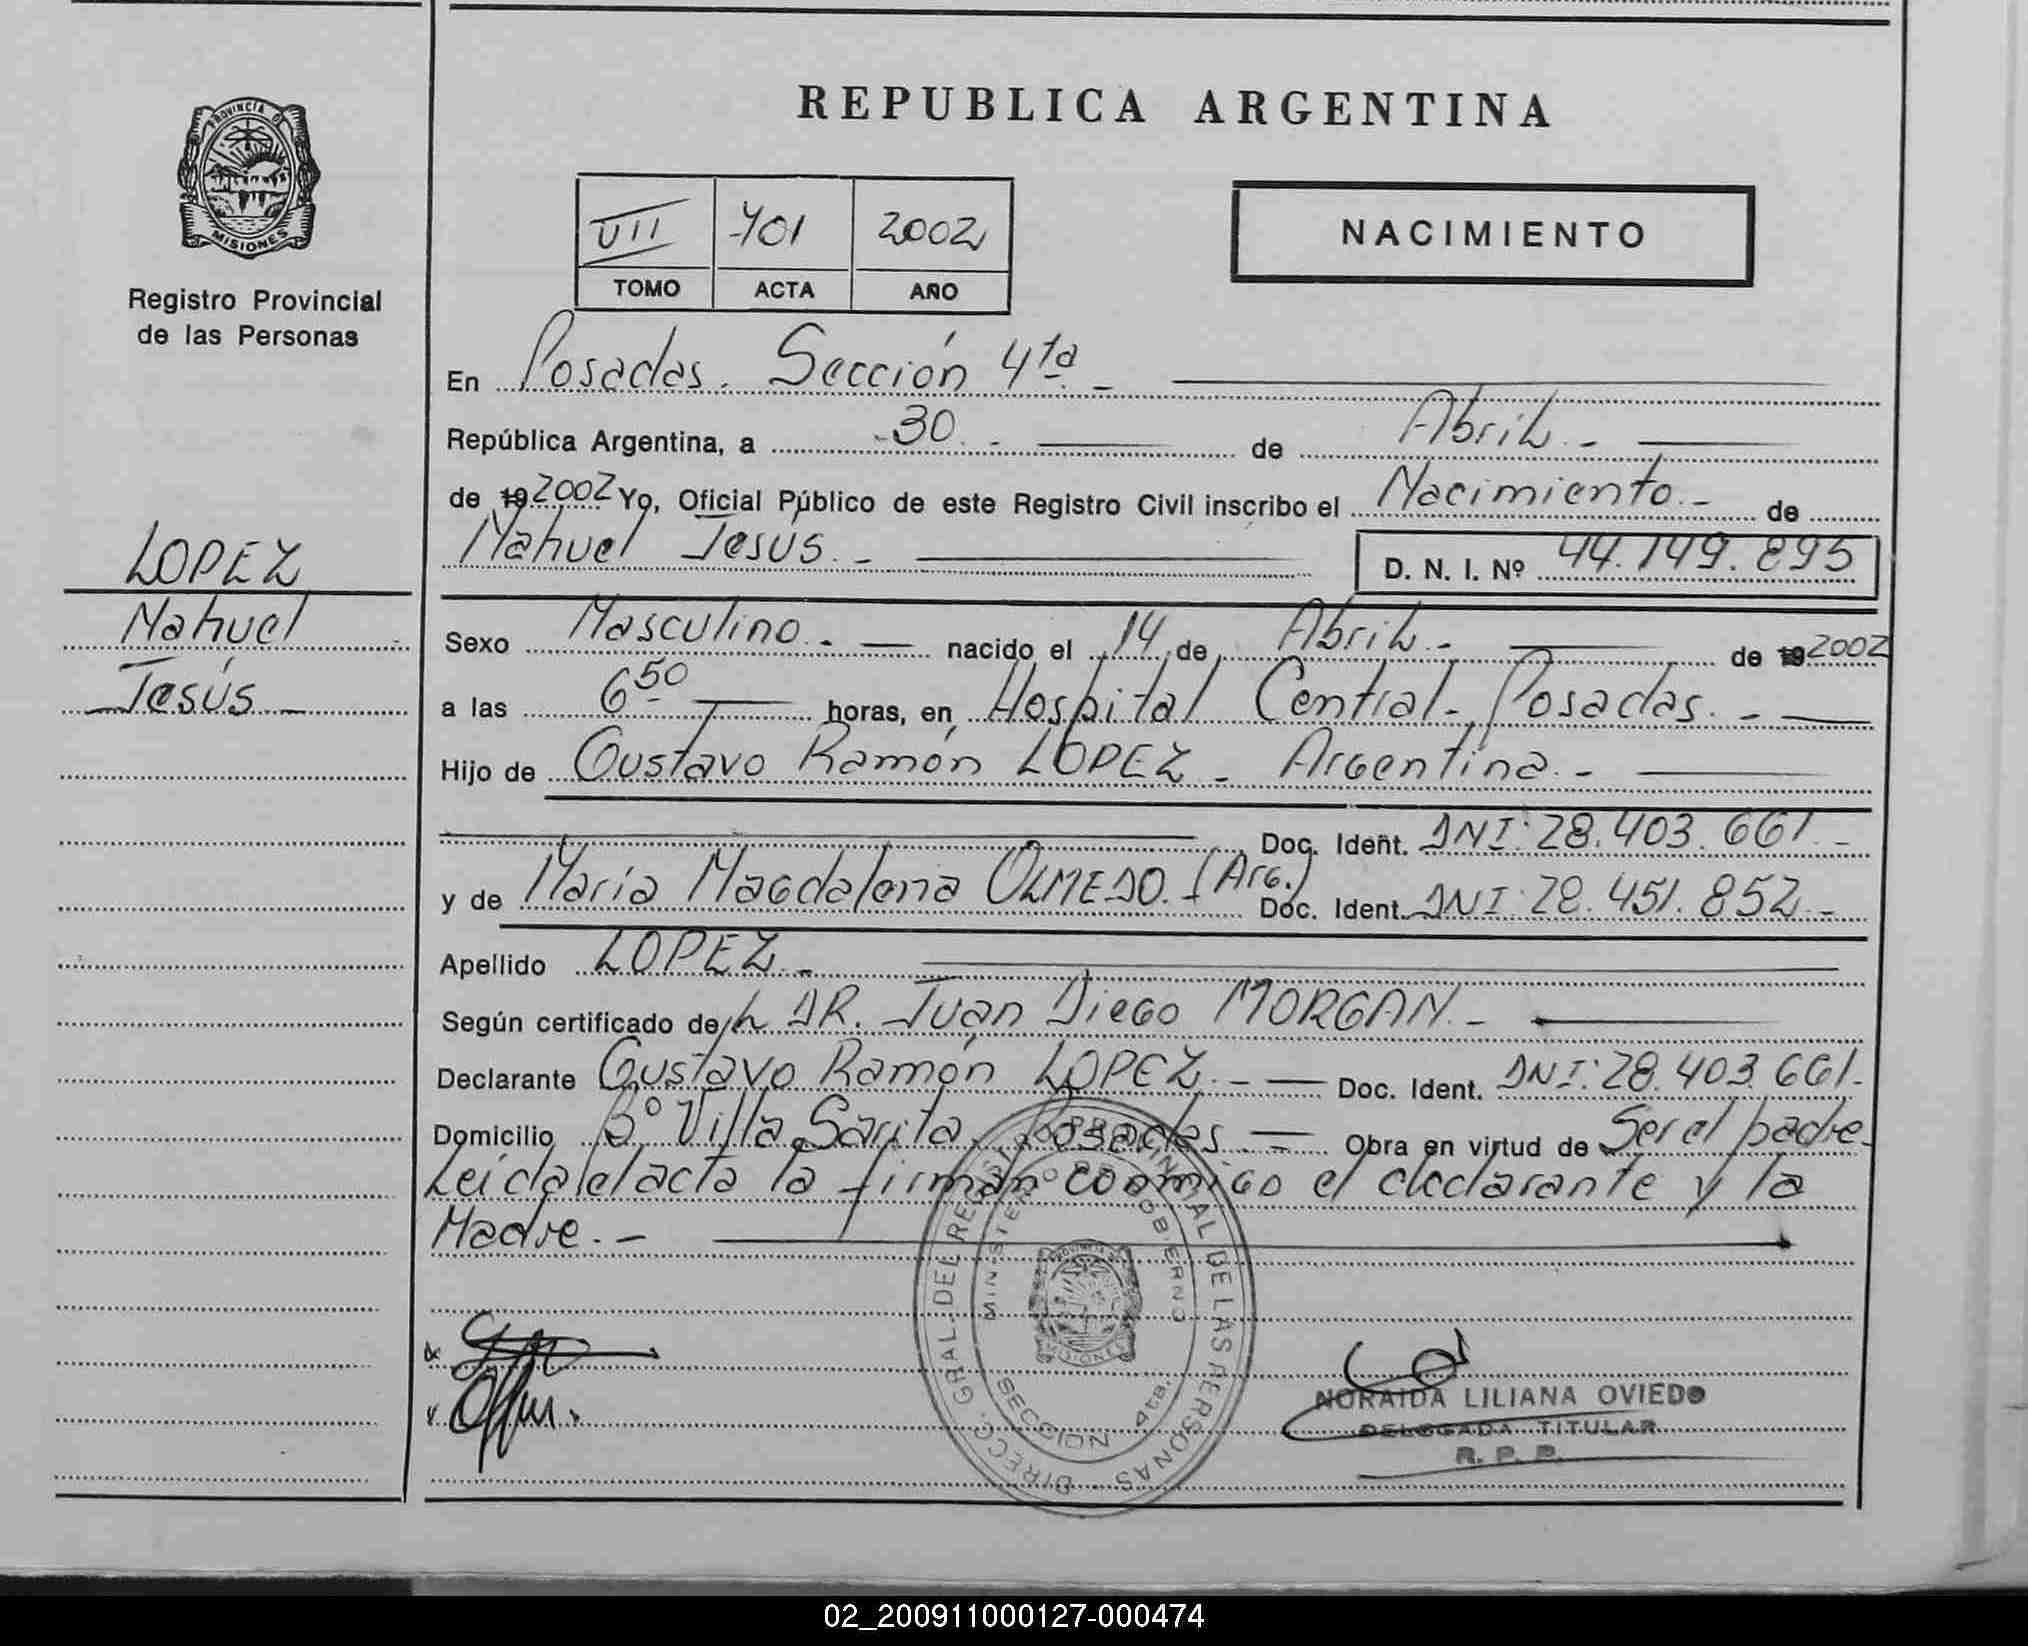 REPUBLICA ARGENTINA
PROVINCIA D
MISIONES
Registro Provincial
de las Personas
VII 701 2002
TOMO ACTA AÑO
NACIMIENTO
En Posadas. Sección 4ta -
República Argentina, a -30.- de Abril.-
de 19 2002 Yo, Oficial Público de este Registro Civil inscribo el Nacimiento.- de
Nahuel Jesús.- D. N. I. Nº 44.149.895
LOPEZ
Nahuel
Jesús
Sexo Masculino.- nacido el 14 de Abril.- de 19 2002
a las 6 50 horas, en Hospital Central- Posadas.-
Hijo de Gustavo Ramón LOPEZ - Argentina.-
Doc. Ident. DNI: 28.403.661.-
y de María Magdalena OLMEDO.- (Arg.) Doc. Ident. DNI: 28.451.852.-
Apellido LOPEZ.-
Según certificado de/l DR. Juan Diego MORGAN.-
Declarante Gustavo Ramón LOPEZ.- Doc. Ident. DNI: 28.403.661.-
Domicilio Bº Villa Sarita. Posadas.- Obra en virtud de Ser el padre.
Leida el acta la firman conmigo el declarante y la
Madre.-
DIRECC. GRAL. DEL REGIST. PROVINCIAL DE LAS PERSONAS
MINISTERIO DE GOBIERNO
MISIONES
SECCION 4ta.
NORAIDA LILIANA OVIEDO
DELEGADA TITULAR
R. P. P.
02_200911000127-000474